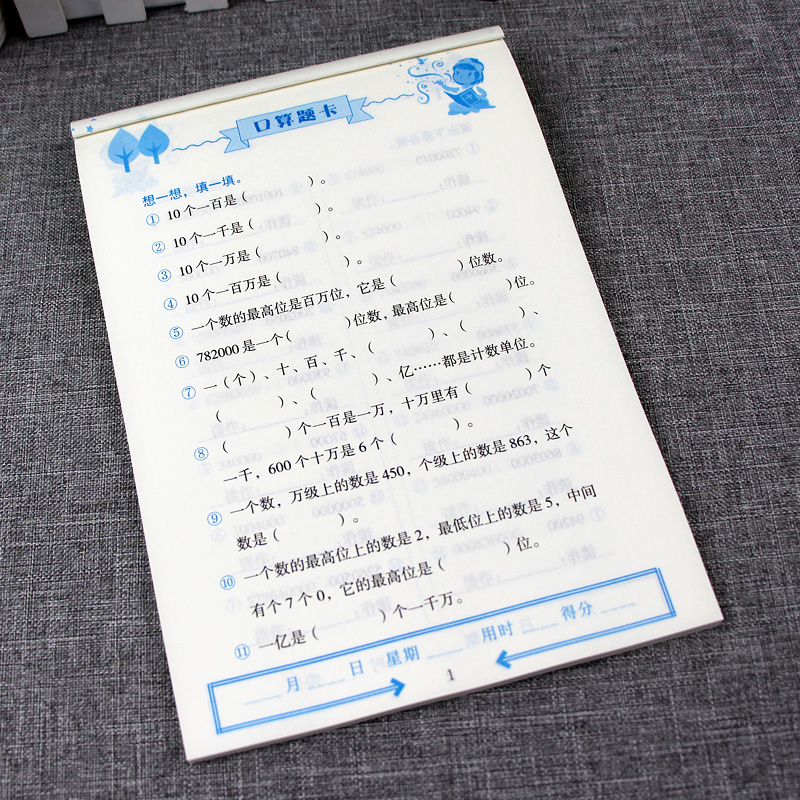 口算题卡
想一想，填一填。
① 10个一百是（　　）。
② 10个一千是（　　）。
③ 10个一万是（　　）。
④ 10个一百万是（　　）。
⑤ 一个数的最高位是百万位，它是（　　）位数。
⑥ 782000是一个（　　）位数，最高位是（　　）位。
⑦ 一（个）、十、百、千、（　　）、（　　）、
（　　）、（　　）、亿……都是计数单位。
⑧ （　　）个一百是一万，十万里有（　　）个
一千，600个十万是6个（　　）。
⑨ 一个数，万级上的数是450，个级上的数是863，这个
数是（　　）。
⑩ 一个数的最高位上的数是2，最低位上的数是5，中间
有个7个0，它的最高位是（　　）位。
⑪ 一亿是（　　）个一千万。
____月____日 星期____ 用时____ 得分____
1